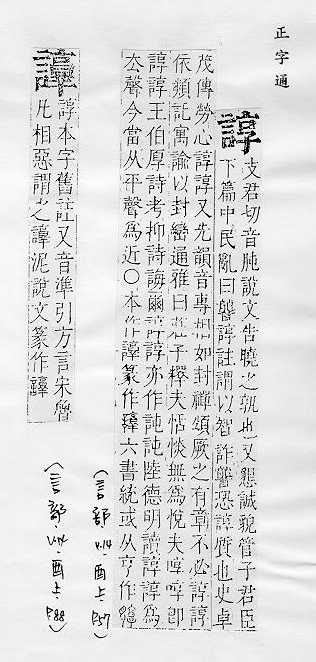 正字通
諄
支君切音肫說文告曉之孰也又懇誠貌管子君臣
下篇中民亂曰諄諄註謂以智詐讋恐諄質也史卓
茂傳勞心諄諄又先韻音專相如封禪頌厥之有章不必諄諄
依類託寓諭以封巒通雅曰莊子釋夫恬惔無爲悅夫啍啍即
諄諄王伯厚詩考抑詩誨爾諄諄亦作訰訰陸德明讀諄諄爲
去聲今當从平聲爲近○本作𧫷篆作六書統或从亨作
諄本字舊註又音準引方言宋魯
凡相惡謂之諄泥說文篆作
(言部 4.14.酉上. P.57)
(言部 酉上. P.88)